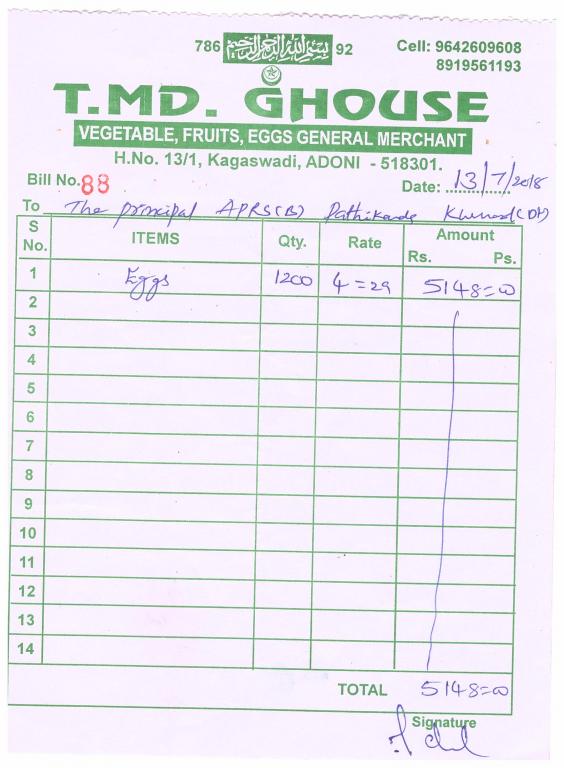 786 بسم الله الرحمن الرحيم 92 Cell: 9642609608
8919561193
T.MD. GHOUSE
VEGETABLE, FRUITS, EGGS GENERAL MERCHANT
H.No. 13/1, Kagaswadi, ADONI - 518301.
Bill No. 88 Date: 13/7/2018
To The principal APRS(B)
S No. ITEMS Qty. Rate Amount Rs. Ps.
1 Eggs 1200 4=29 5148=00
2
3
4
5
6
7
8
9
10
11
12
13
14
TOTAL 5148=00
Signature